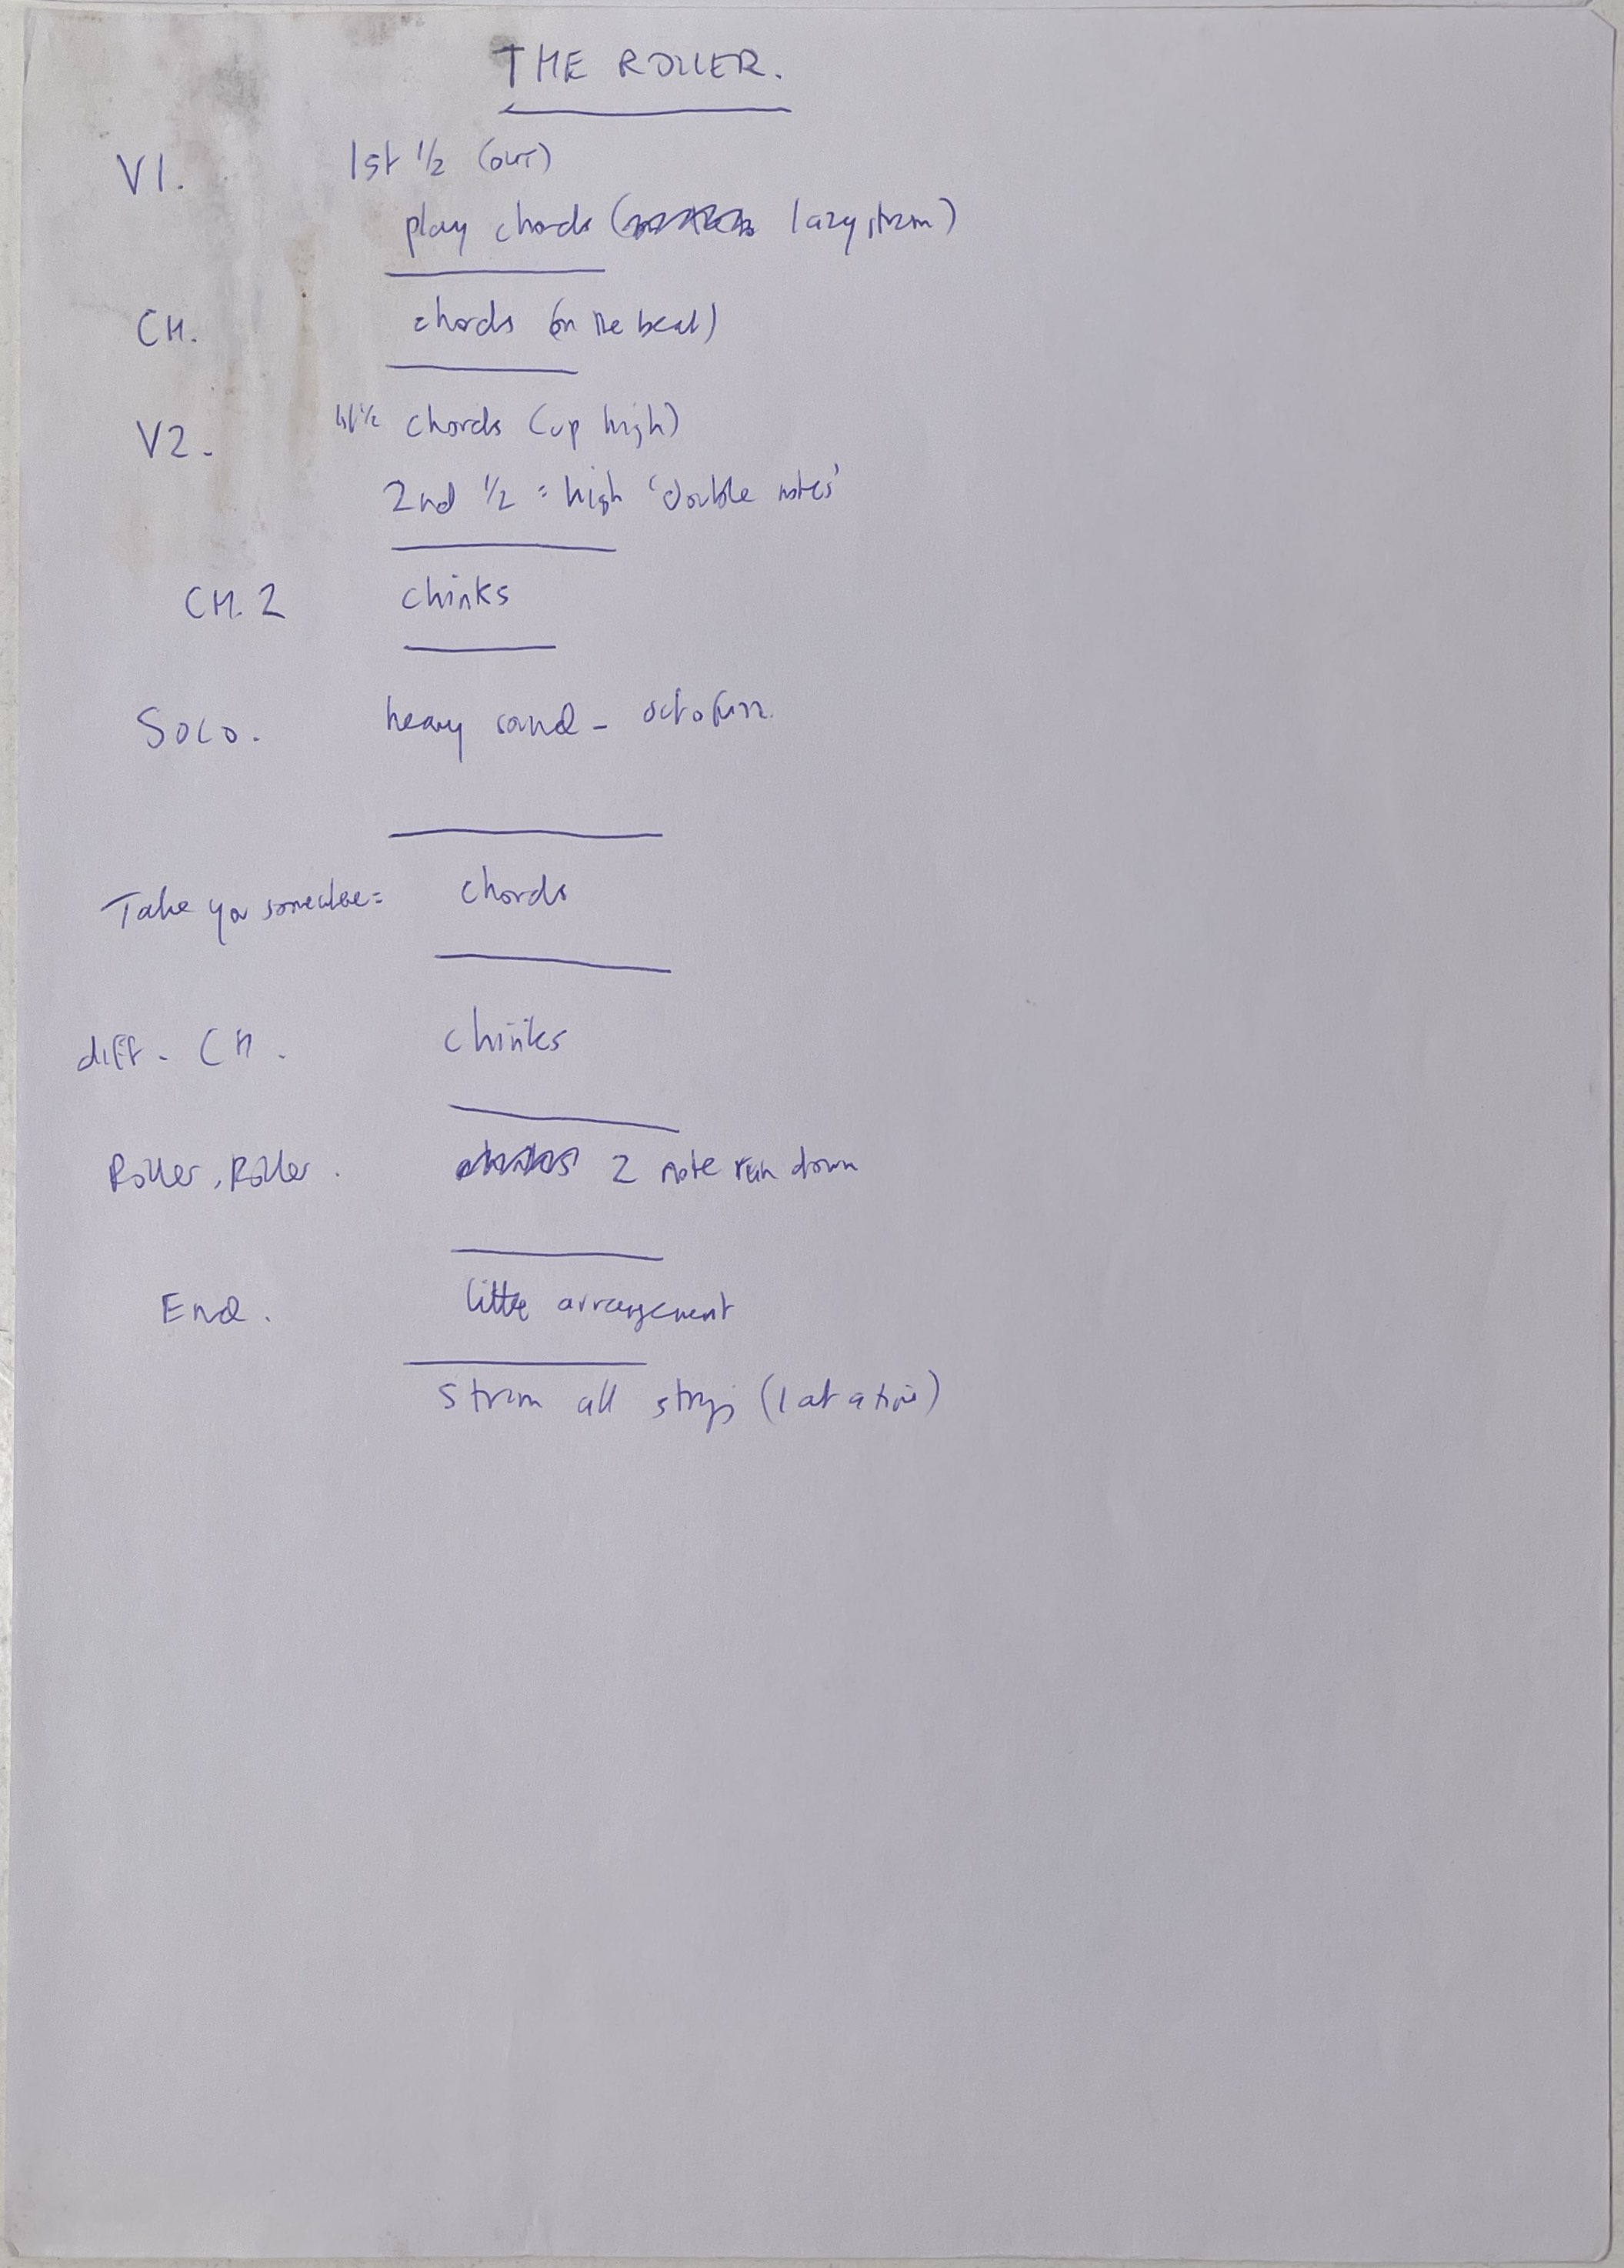 THE ROLLER.
V1. 1st 1/2 (out)
play chords ( lazy strum)
CH. chords (on the beat)
V2. 1st 1/2 chords (up high)
2nd 1/2 = high 'double notes'
CH. 2 chinks
SOLO. heavy sound - octofuzz.
Take you somewhere = chords
diff. CH. chinks
Roller, Roller. 2 note run down
End. little arrangement
strum all strings (1 at a time)